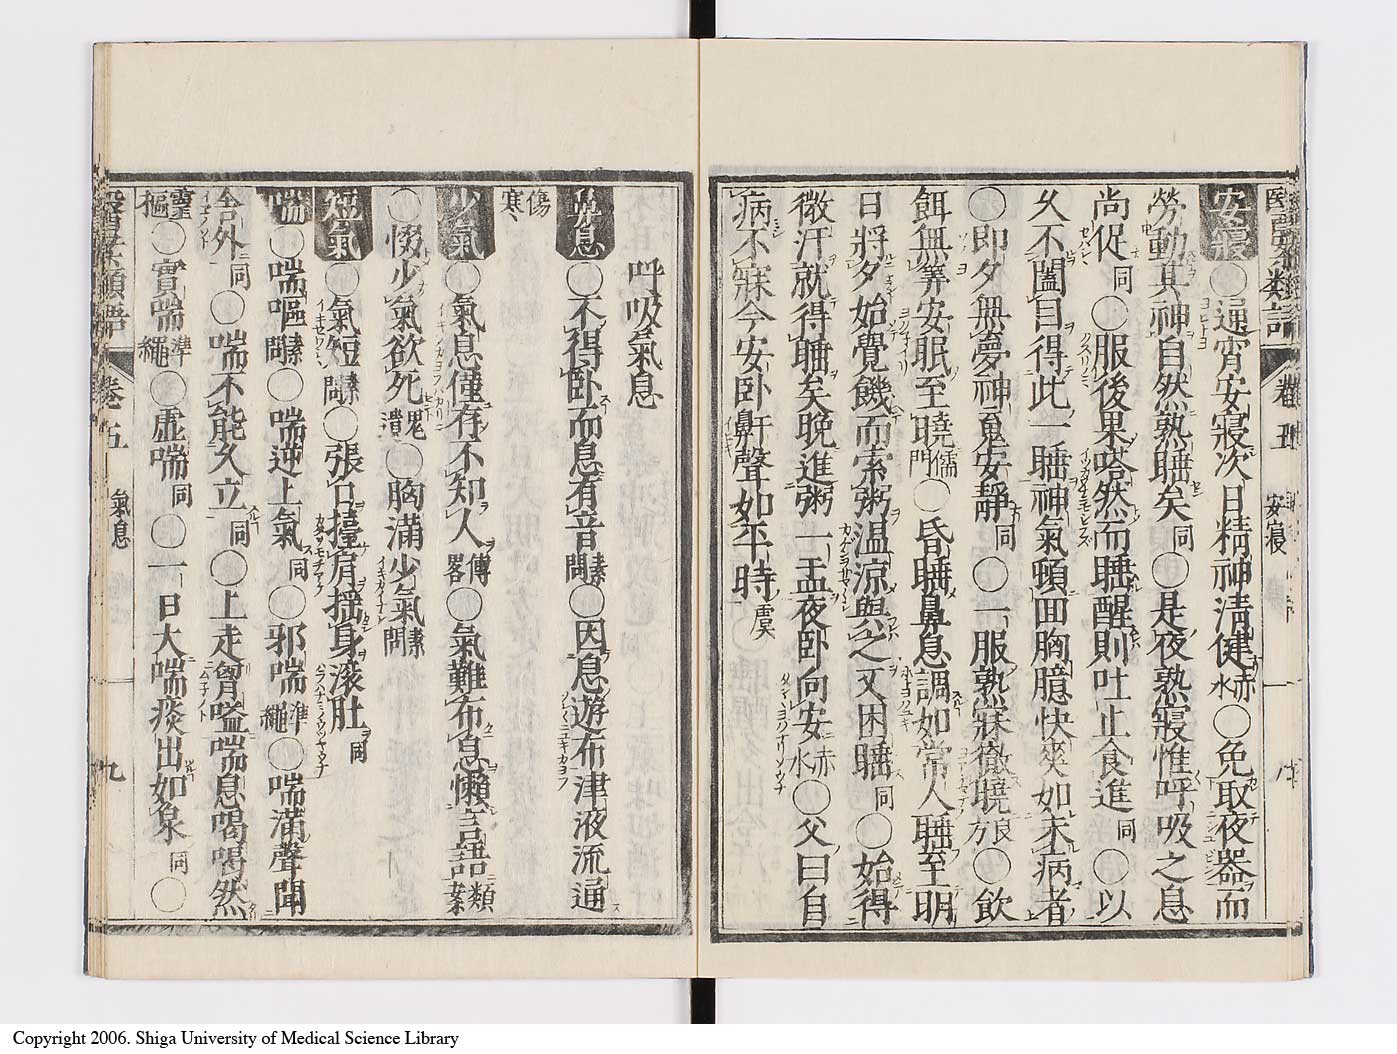 醫學類語 卷五 安寢 八
安寢○通宵安寢次日精神清健赤水○免取夜器而
勞動其神自然熟睡矣同○是夜熟寢惟呼吸之息
尚促同○服後果嗒然而睡醒則吐止食進同○以
久不闔目得此一睡神氣頓回胸臆快爽如未病者
○即夕無夢神䰟安靜同○一服熟寐徹曉良方○飲
餌無筭安眠至曉儒門○昏睡鼻息調如常人睡至明
日將夕始覺饑而索粥溫涼與之又困睡同○始得
微汗就得睡矣晚進粥一盂夜卧向安赤水○父曰自
病不寐今安卧鼻鼾聲如平時虞
呼吸氣息
鼻息○不得卧而息有音素問○因息遊布津液流通
傷寒
少氣○氣息僅存不知人傳畧○氣難布息懶言語類案
○惙少氣欲死鬼遺○胸滿少氣素問
短氣○氣短素問○張口擡肩揺身滚肚同
喘○喘嘔素問○喘逆上氣同○邪喘準繩○喘滿聲聞
舍外同○喘不能久立同○上走胷嗌喘息喝喝然
靈樞○實喘準繩○虚喘同○一日大喘痰出如泉同○
醫學類語 卷五 氣息 九
Copyright 2006. Shiga University of Medical Science Library